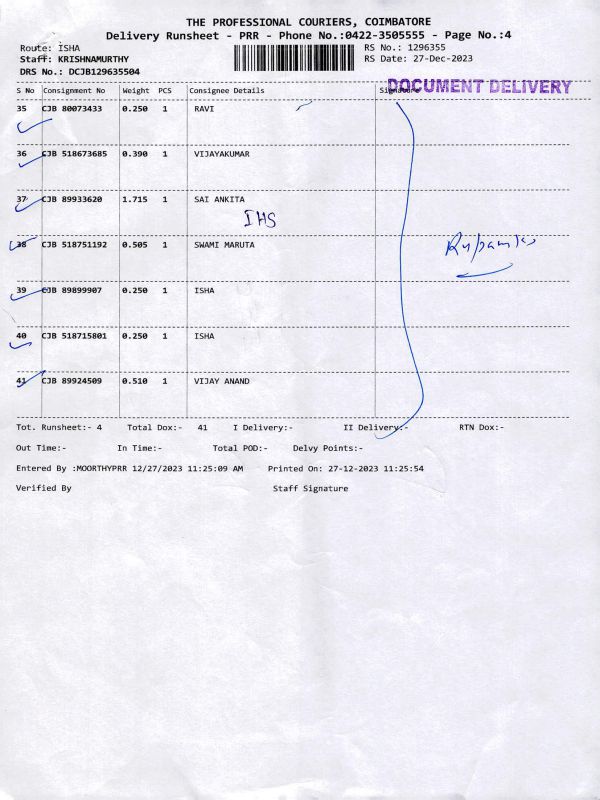 THE PROFESSIONAL COURIERS, COIMBATORE
Delivery Runsheet - PRR - Phone No.:0422-3505555 - Page No.:4
Route: ISHA RS No.: 1296355
Staff: KRISHNAMURTHY RS Date: 27-Dec-2023
DRS No.: DCJB129635504
DOCUMENT DELIVERY
S No Consignment No Weight PCS Consignee Details Signature
35 CJB 80073433 0.250 1 RAVI
36 CJB 518673685 0.390 1 VIJAYAKUMAR
37 CJB 89933620 1.715 1 SAI ANKITA
IHS
38 CJB 518751192 0.505 1 SWAMI MARUTA
39 CJB 89899907 0.250 1 ISHA
40 CJB 518715801 0.250 1 ISHA
41 CJB 89924509 0.510 1 VIJAY ANAND
Tot. Runsheet:- 4 Total Dox:- 41 I Delivery:- II Delivery:- RTN Dox:-
Out Time:- In Time:- Total POD:- Delvy Points:-
Entered By :MOORTHYPRR 12/27/2023 11:25:09 AM Printed On: 27-12-2023 11:25:54
Verified By Staff Signature